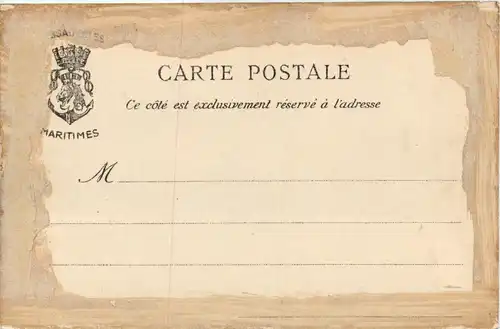 MARITIMES
CARTE POSTALE
Ce côté est exclusivement réservé à l'adresse
M